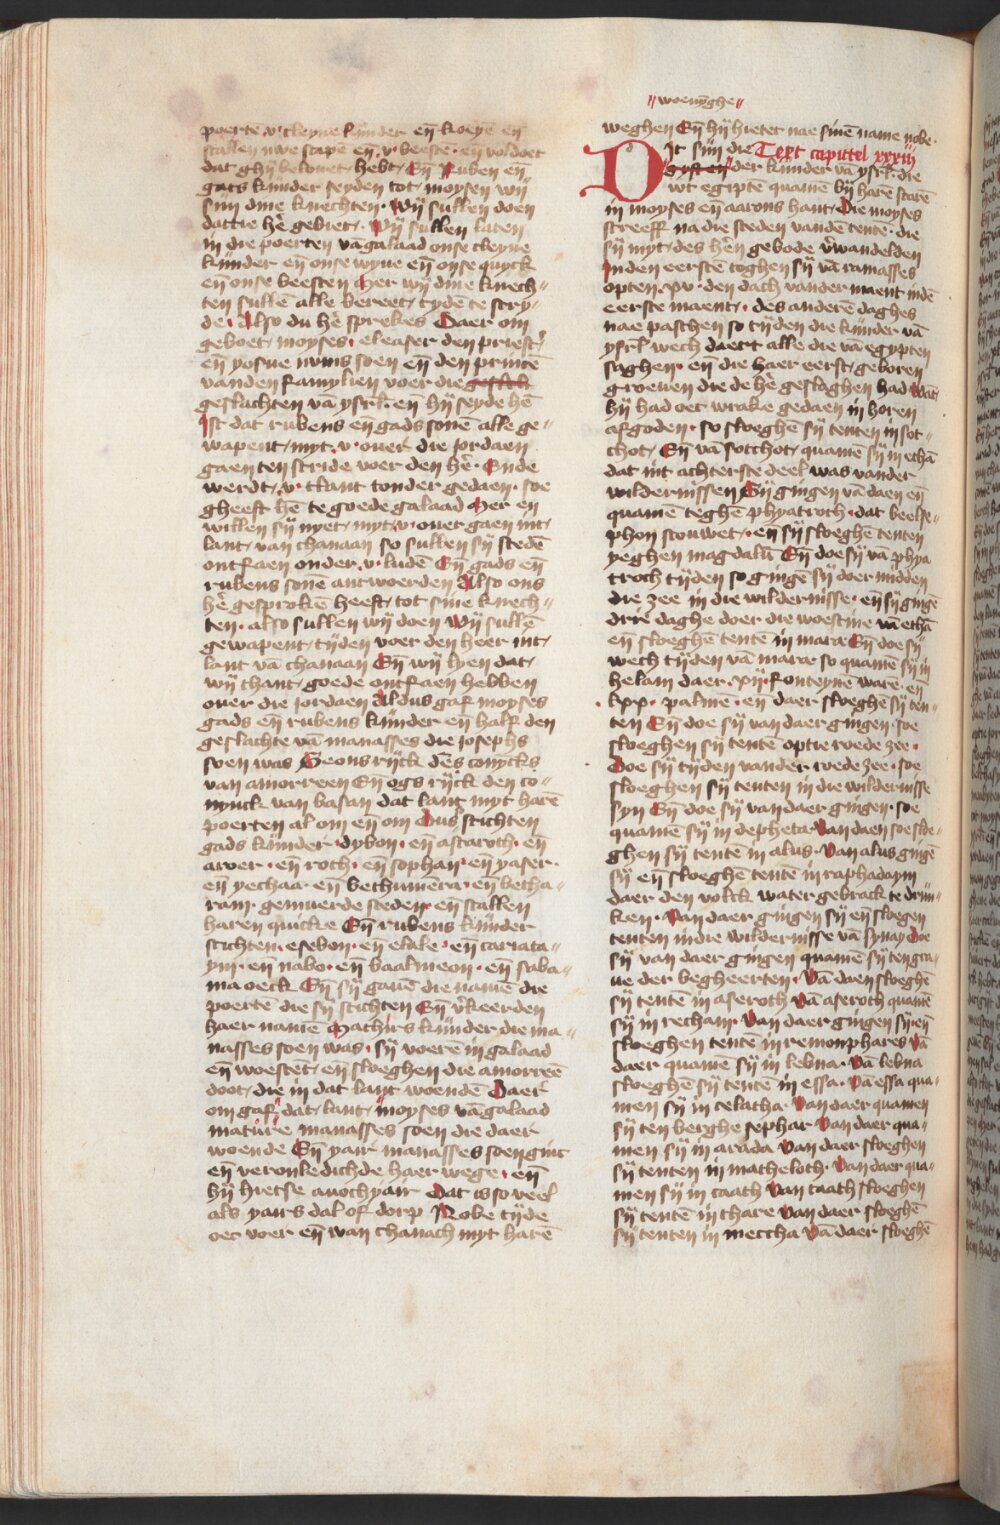 poertē v cleyne kinder eñ koeyē eñ
stallen uwe scapē eñ v beeste · eñ voldoet
dat ghij belouet hebt · Eñ Ruben eñ
gats kinder seyden tot moysen wij
sijn dine knechten · Wij sullen doen
dattie hē gebiet · Wij sullen laten
in die poerten vā galaad onse cleyne
kinder eñ onse wyue eñ onse quyck
eñ onse beesten Mer wij dine knech//
ten sullē alle bereet tydē te stry//
de · Also du hē sprekes Daer om
geboet moyses · eleaser den priest
eñ yosue nuns soen eñ den princē
vanden famylien voer die geslech
geslachten vā ysrl · eñ hij seyde hē
Ist dat rubens eñ gads sonē alle ge//
wapent myt v · ouer die iordaen
gaen ten stride voer den hē · Ende
werdt v tlant tonder gedaen · soe
gheeft hē te goede galaad Mer en
willen sij nyet myt v · ouer gaen int
lant van chanaan so sullen sij stedē
ontfaen onder v ludē Eñ gads eñ
rubens sonē antwoerden Also ons
hē gesprokē heeft tot sine knech//
ten · also sullen wij doen Wij sullē
gewapent tijden voer den heer int
lant vā chanaan Eñ wij lyen dat
wij thant goede ontfaen hebben
ouer die iordaen Aldus gaf moyses
gads eñ rubens kinder eñ half den
geslachte vā manasses die iosephs
soen was Seons rijck des conycks
van amorreen Eñ ogs rijck den co//
nynck van basan dat lant myt harē
poerten al om eñ om Dus stichten
gads kinder · dybon · eñ astaroth · eñ
aroer · eñ roth · eñ sophan · eñ yaser ·
eñ yechaa eñ bethnmēra · eñ betha//
ram · gemuerde steden eñ stallen
haren quicke Eñ rubens kinder
stichten · esebon · eñ elale · eñ cariata//
ym · eñ nabo · eñ baalmeon · eñ saba//
ma oeck Eñ sij gauē die namē die
poertē die sij stichten Eñ v̄keerden
haer namē Machirs kinder die ma//
nasses soen was · sij voerē in galaad
eñ woestēt eñ sloeghen die amorreē
doot die in dat lant woendē Daer
om gaf dat lant moyses vā galaad
mature manasses soen die daer
woende Eñ yair manasses soen ginc
eñ veronledichde haer wege · eñ
hij hietse auothyair Dat is so veel
als yairs dal of dorp Nobe tijde
oec voer eñ wan chanath myt harē
//woenyghe//
weghen Eñ hij hietet nae sinē name nobe ·
Dit sijn die Text capittel xxxiij
giften der kinder vā ysrl · die
wt egiptē quamē bij harē scarē
in moyses eñ aarons hant Die moyses
screeff na die steden vandē tente · die
sij myt des hēn gebode v̄wandelden
Inden eerstē toghen sij vā ramasses
opten · xv · den dach vander maent indē
eerste maent · des anderē daghes
nae paschen so tijden die kinder vā
ysrl wech daert alle die vā egypten
saghen · eñ die haer eerst geboren
groeuen die de hē geslaghen had Wāt
hij had oec wrake gedaen in horen
afgoden · so sloeghē sij tenten in sot//
choт Eñ vā sotchot quamē sij in ethā
dat int achterste deel was vander
wildernissen Sij gingen vā daen eñ
quamē teghē phyatroth · dat beelse//
phon scouwet · eñ sij sloeghē tenten
yeghen magdalū Eñ doe sij vā phya
troth tijden so gingē sij doer midden
die zee in die wildernisse · eñ sij gingē
drie daghe doer die woestine vā ethā
eñ sloeghē tentē in mara Eñ doe sij
wech tijden vā mara so quamē sij in
helam daer · xij · fonteynē warē · eñ
lxx · palmē · eñ daer sloeghē sij ten//
ten Eñ doe sij van daer gingen · soe
sloeghen sij tentē optie roede zee ·
Doe sij tijden vander rode zee · soe
sloeghen sij tenten in die wildernisse
syn Eñ doe sij van daer gingen · soe
quamē sij in depheta Van daen soe sloe//
ghen sij tentē in alus · Van alus gingē
sij eñ sloeghē tentē in raphadaym
daer den volck water gebrack te drin//
ken · Van daer gingen sij eñ sloegen
tenten indie wildernisse vā synay Doe
sij van daer gingen quamē sij ten gra//
ue der begheerten · Vā daen sloeghē
sij tentē in aseroth Vā aseroth quamē
sij in recham · Van daer gingen sij eñ
sloeghen tentē in remonphares Vā
daer quamē sij in lebna · Vā lebna
sloeghē sij tentē in essa · Vā essa qua//
men sij in celatha · Van daer quamen
sij ten berghe sephar Van daer qua//
men sij in arada Van daer sloeghen
sij tenten in matheloth · Van daer qua//
men sij in caath Van caath sloeghen
sij tentē in thare Van daer sloeghē
sij tenten in mettha Vā daer sloeghē